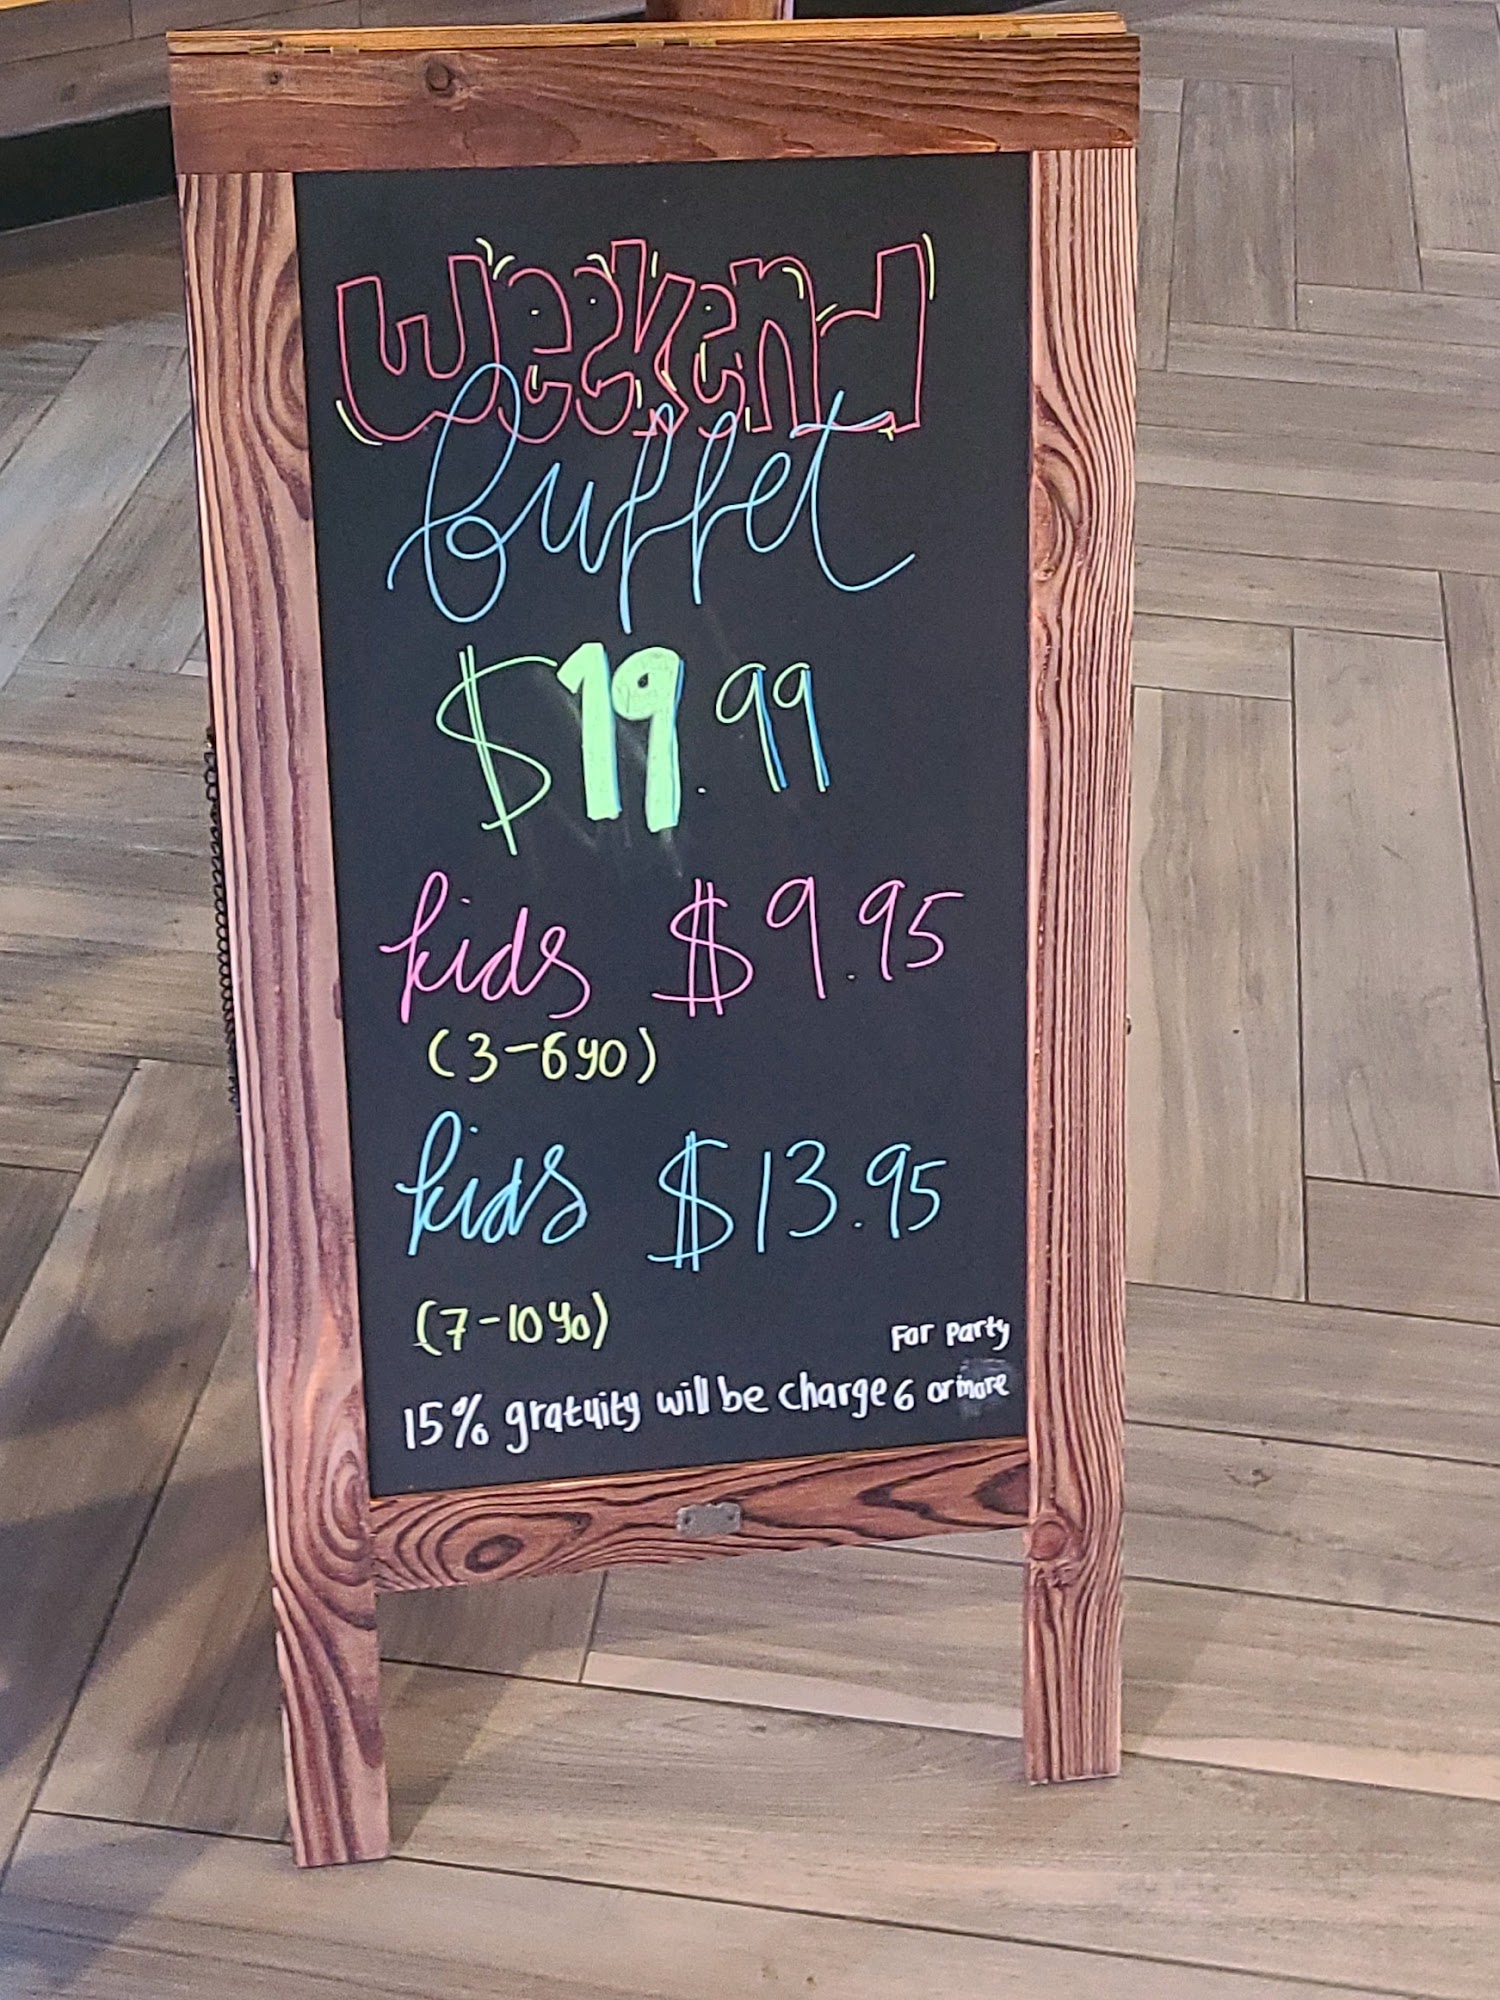 Weekend
buffet
$19.99
kids $9.95
(3-6yo)
kids $13.95
(7-10yo)
For party
15% gratuity will be charge 6 or more